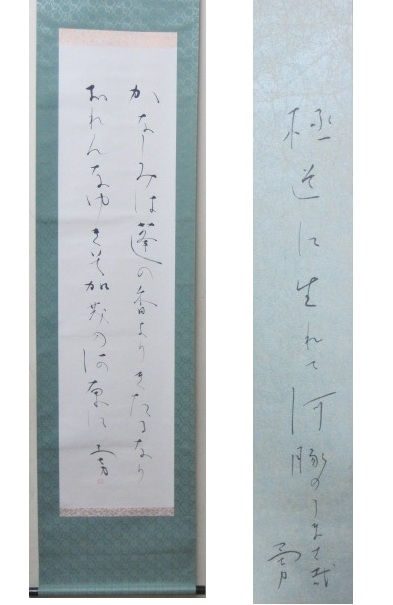 かなしみは蓬の香よりきたるなり
おれんなゆきそ加茂の河原に
勇
極道に生れて河豚のうまさ哉
勇